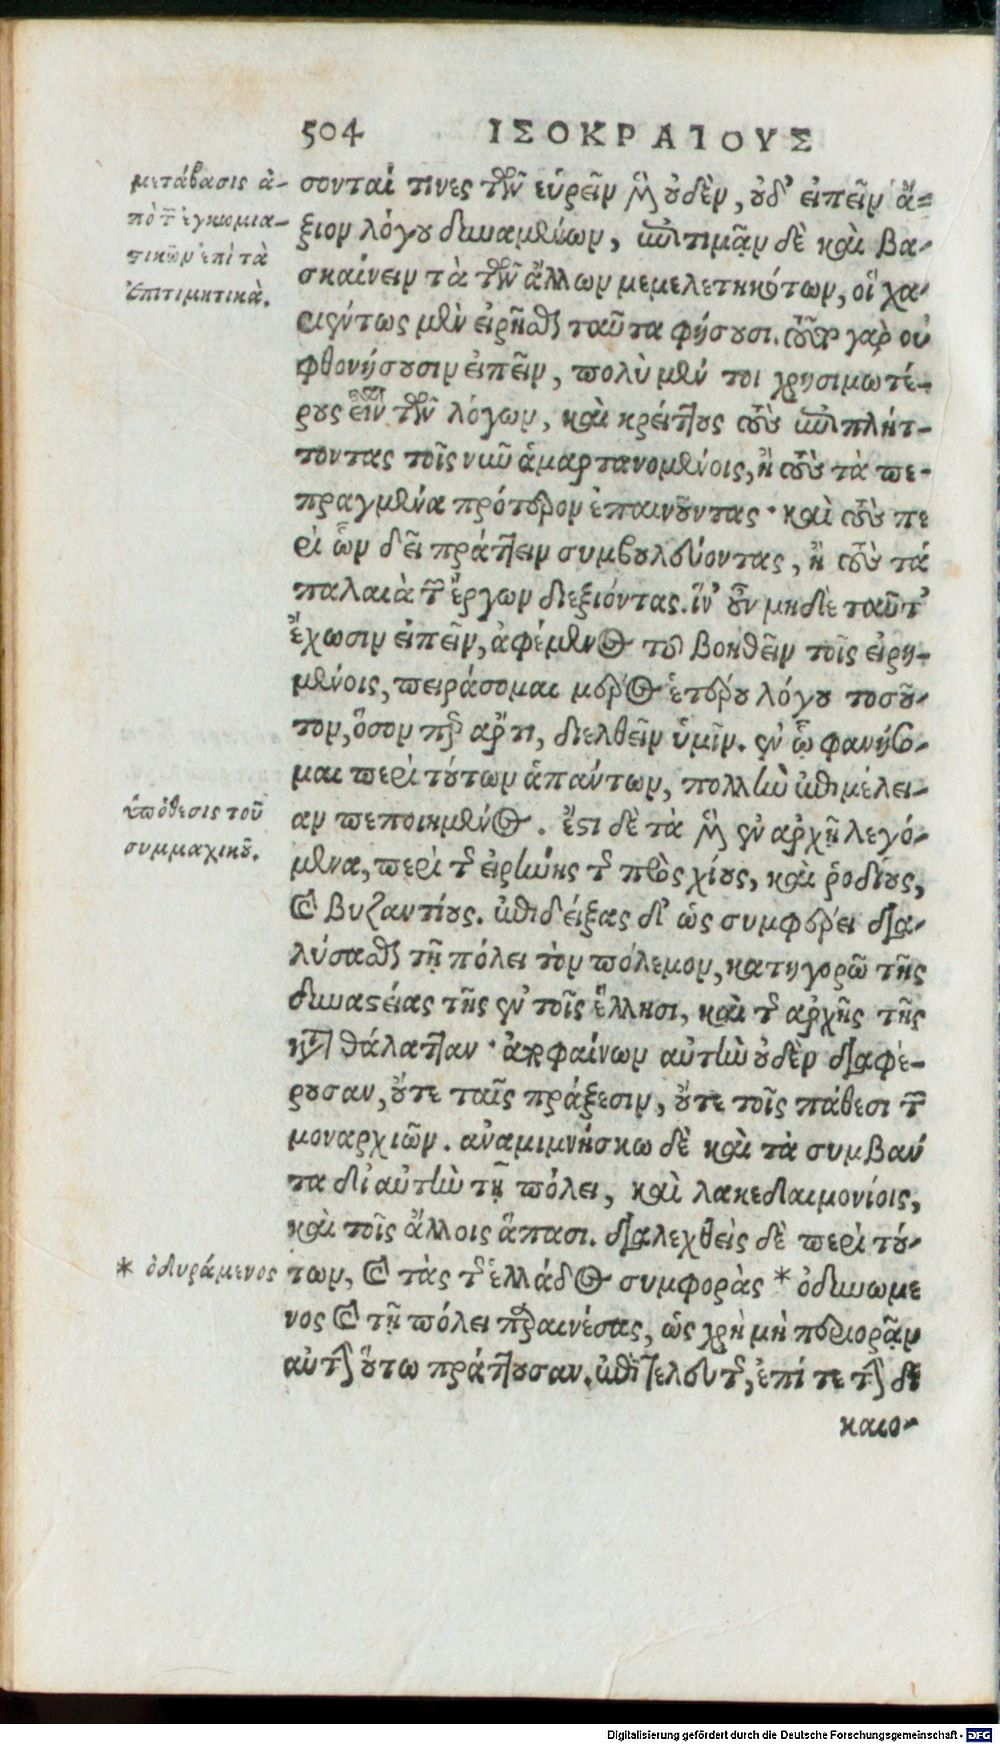 504 ΙΣΟΚΡΑΤΟΥΣ
μετάβασις ἀ-
πὸ τῶν ἐγκωμια-
στικῶν ἐπὶ τὰ
ἐπιτιμητικά.
σονταί τινες τῶν εὑρεῖν μὲν οὐδὲν, οὐδ' εἰπεῖν ἄ-
ξιον λόγου δυναμένων, ἐπιτιμᾷν δὲ καὶ βα-
σκαίνειν τὰ τῶν ἄλλων μεμελετηκότων, οἳ χα-
ριέντως μὲν εἰρῆσθαι ταῦτα φήσουσι. τὸ γὰρ εὖ
φθονήσουσιν εἰπεῖν, πολὺ μέν τοι χρησιμωτέ-
ρους εἶναι τῶν λόγων, καὶ κρείττους τοὺς ἐπιπλήτ-
τοντας τοῖς νῦν ἁμαρτανομένοις, ἢ τοὺς τὰ πε-
πραγμένα πρότερον ἐπαινοῦντας· καὶ τοὺς πε
ρὶ ὧν δεῖ πράττειν συμβουλεύοντας, ἢ τοὺς τὰ
παλαιὰ τῶν ἔργων διεξιόντας. ἵν' οὖν μηδὲ ταῦτ'
ἔχωσιν εἰπεῖν, ἀφέμενος τοῦ βοηθεῖν τοῖς εἰρη-
μένοις, πειράσομαι μέρος ἑτέρου λόγου τοσοῦ-
τον, ὅσον περ ἄρτι, διελθεῖν ὑμῖν. ἐν ᾧ φανήσο-
μαι περὶ τούτων ἁπάντων, πολλὴν ἐπιμέλει-
ὑπόθεσις τοῦ
συμμαχικοῦ.
αν πεποιημένος. ἔστι δὲ τὰ μὲν ἐν ἀρχῇ λεγό-
μενα, περὶ τῆς εἰρήνης τῆς πρὸς χίους, καὶ ῥοδίους,
καὶ βυζαντίους. ἐπιδείξας δ' ὡς συμφέρει δια-
λύσασθαι τῇ πόλει τὸν πόλεμον, κατηγορῶ τῆς
δυναστείας τῆς ἐν τοῖς ἕλλησι, καὶ τῆς ἀρχῆς τῆς
κατὰ θάλατταν· ἀποφαίνων αὐτὴν οὐδὲν διαφέ-
ρουσαν, οὔτε ταῖς πράξεσιν, οὔτε τοῖς πάθεσι τῶν
μοναρχιῶν. ἀναμιμνήσκω δὲ καὶ τὰ συμβάν
τα δι' αὐτὴν τῇ πόλει, καὶ λακεδαιμονίοις,
καὶ τοῖς ἄλλοις ἅπασι. διαλεχθεὶς δὲ περὶ τού-
* ὀδυράμενος
των, καὶ τὰς τῆς ἑλλάδος συμφορὰς * ὀδυνωμε
νος καὶ τῇ πόλει παραινέσας, ὡς χρὴ μὴ περιορᾷν
αὐτὴν οὕτω πράττουσαν. ἐπὶ τελευτῆς, ἐπί τε τὴν δι
καιο-
Digitalisierung gefördert durch die Deutsche Forschungsgemeinschaft - DFG